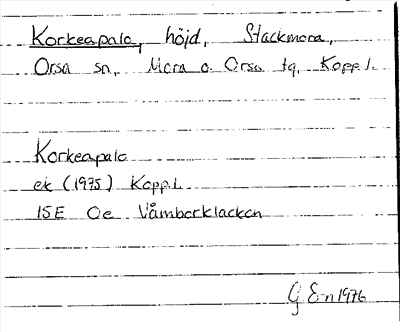 Korkeapalo, höjd, Stackmora,
Orsa sn, Mora o. Orsa tg, Kopp.l.
Korkeapalo
ek (1975) Kopp.l.
15E Oe Våmbarklacken
G E-n 1976